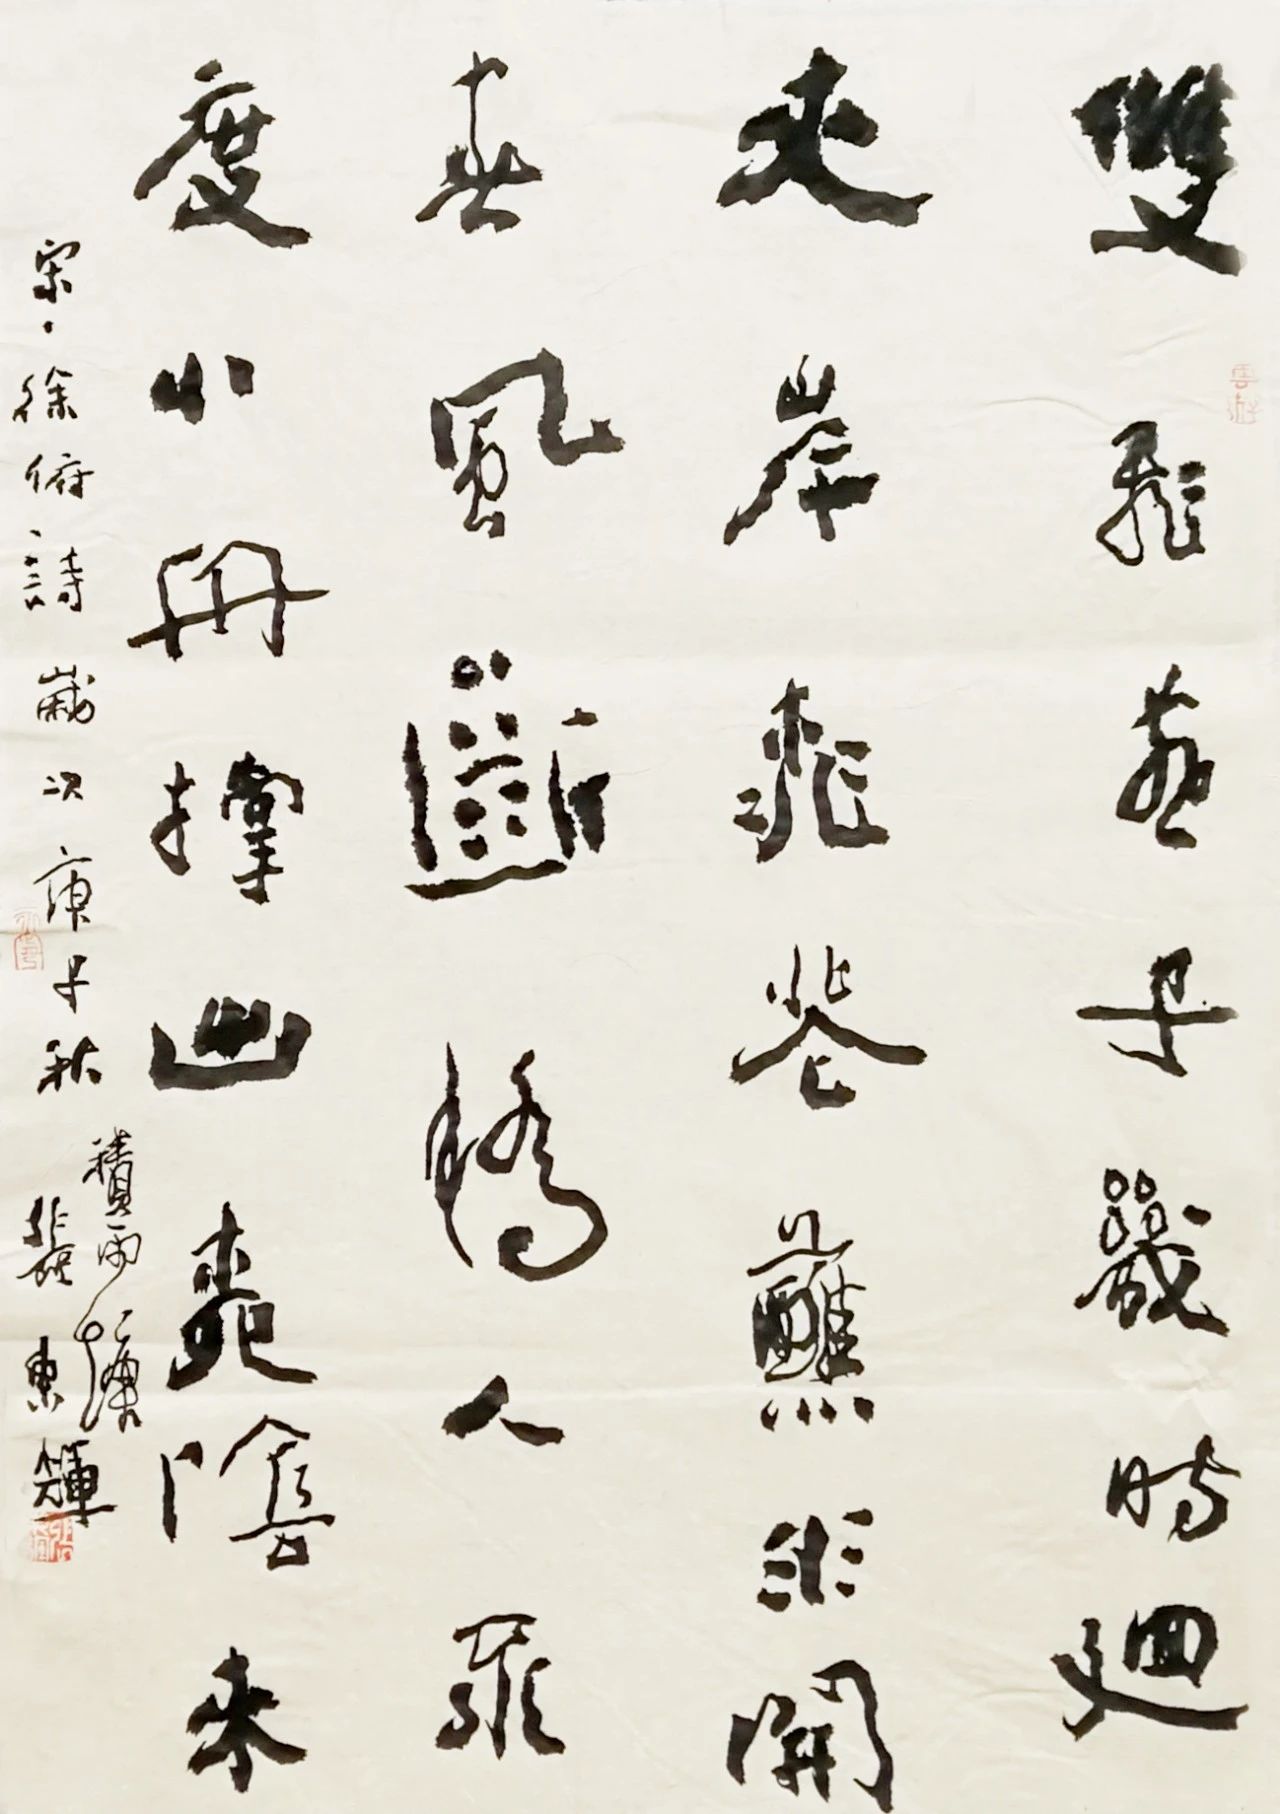 雙飛燕子幾時迴
夾岸桃花蘸水開
春風斷橋人不
度小舟撐出柳陰來
宋徐俯詩歲次庚子秋
積雨
張東輝